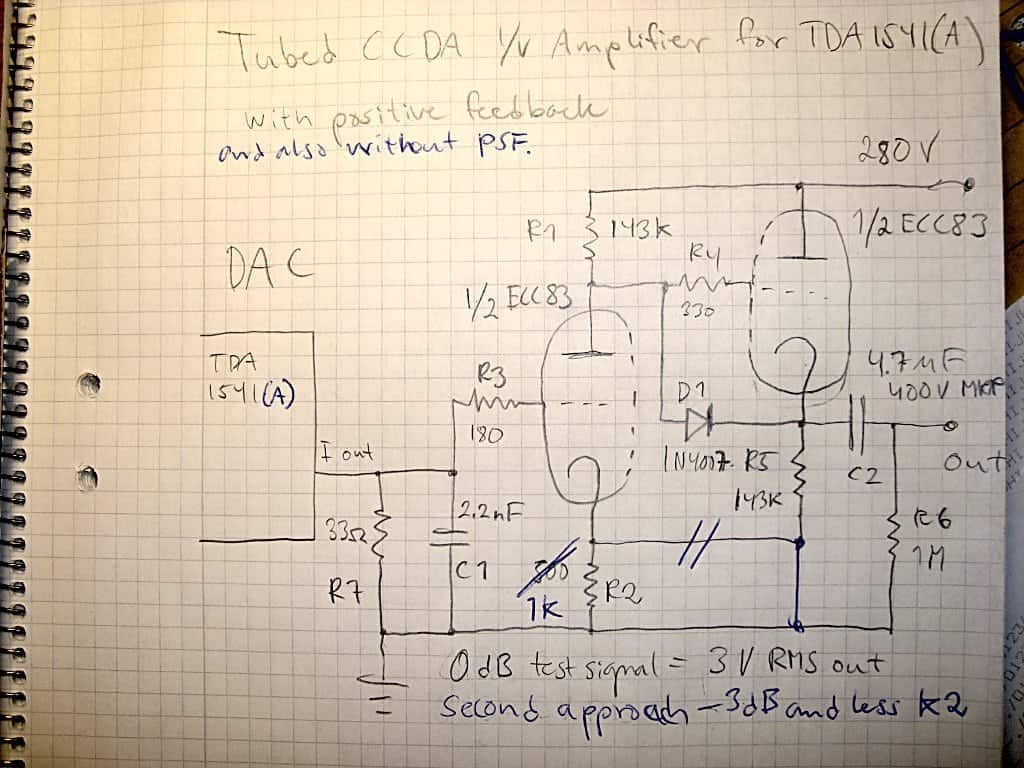 Tubed CCDA I/V Amplifier for TDA1541(A)
with positive feedback
and also without PSF.
280V
1/2 ECC83
R1 143k
R4
330
DAC
1/2 ECC83
TDA
1541(A)
R3
180
D1
1N4007
4.7µF
400V MKP
I out
R5
143K
C2
out
2.2nF
33Ω
C1
R7
1K
R2
R6
1M
0dB test signal = 3V RMS out
Second approach -3dB and less k2